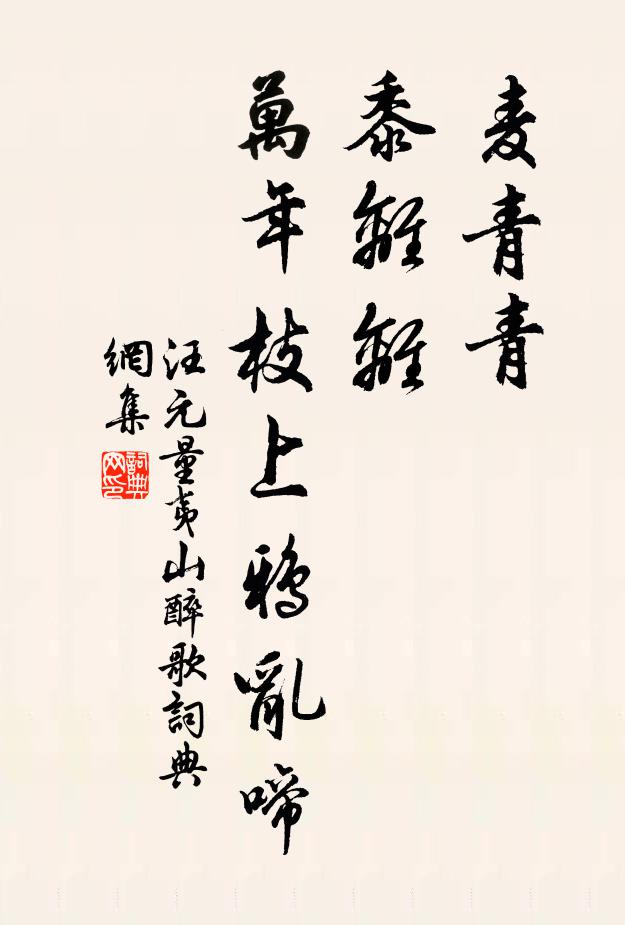 麦青青
黍離離
萬年枝上鴉亂啼
汪元量夷山醉歌詞典
網集
詞典
网印